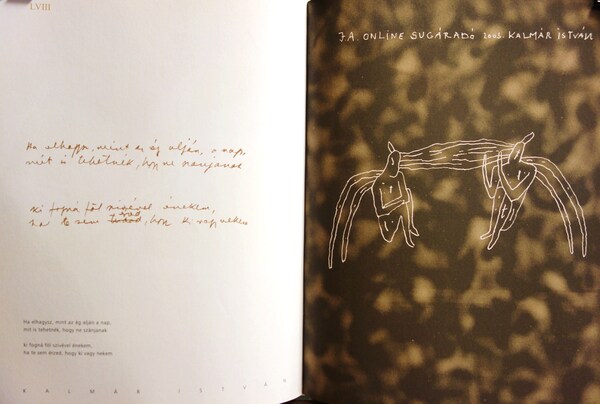 LVIII
Ha elhagysz, mint az ég alján a nap,
mit is tehetnék, hogy ne szánjanak
ki fogná föl szívével énekem,
ha te sem érzed, hogy ki vagy nekem
Ha elhagysz, mint az ég alján a nap,
mit is tehetnék, hogy ne szánjanak
ki fogná föl szívével énekem,
ha te sem érzed, hogy ki vagy nekem
KALMÁR ISTVÁN
J.A. ONLINE SUGÁRADÓ 2005. KALMÁR ISTVÁN